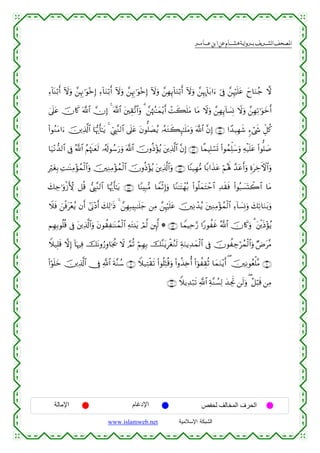 المصحف الشريف برواية هشام عن ابن عامر
لَّا جُنَاحَ عَلَيْهِنَّ فِىٓ ءَابَآئِهِنَّ وَلَآ أَبْنَآئِهِنَّ وَلَآ إِخْوَٰنِهِنَّ وَلَآ أَبْنَآءِ إِخْوَٰنِهِنَّ وَلَآ أَبْنَآءِ
أَخَوَٰتِهِنَّ وَلَا نِسَآئِهِنَّ وَلَا مَا مَلَكَتْ أَيْمَٰنُهُنَّ ۗ وَٱتَّقِينَ ٱللَّهَ ۚ إِنَّ ٱللَّهَ كَانَ عَلَىٰ
كُلِّ شَىْءٍ شَهِيدًا ﴿٥٥﴾ إِنَّ ٱللَّهَ وَمَلَٰٓئِكَتَهُۥ يُصَلُّونَ عَلَى ٱلنَّبِىِّ ۚ يَٰٓأَيُّهَا ٱلَّذِينَ ءَامَنُوا۟
صَلُّوا۟ عَلَيْهِ وَسَلِّمُوا۟ تَسْلِيمًا ﴿٥٦﴾ إِنَّ ٱلَّذِينَ يُؤْذُونَ ٱللَّهَ وَرَسُولَهُۥ لَعَنَهُمُ ٱللَّهُ فِى ٱلدُّنْيَا
وَٱلْءَاخِرَةِ وَأَعَدَّ لَهُمْ عَذَابًا مُّهِينًا ﴿٥٧﴾ وَٱلَّذِينَ يُؤْذُونَ ٱلْمُؤْمِنِينَ وَٱلْمُؤْمِنَٰتِ بِغَيْرِ
مَا ٱكْتَسَبُوا۟ فَقَدِ ٱحْتَمَلُوا۟ بُهْتَٰنًا وَإِثْمًا مُّبِينًا ﴿٥٨﴾ يَٰٓأَيُّهَا ٱلنَّبِىُّ قُل لِّأَزْوَٰجِكَ
وَبَنَاتِكَ وَنِسَآءِ ٱلْمُؤْمِنِينَ يُدْنِينَ عَلَيْهِنَّ مِن جَلَٰبِيبِهِنَّ ۚ ذَٰلِكَ أَدْنَىٰٓ أَن يُعْرَفْنَ فَلَا
يُؤْذَيْنَ ۗ وَكَانَ ٱللَّهُ غَفُورًا رَّحِيمًا ﴿٥٩﴾ ۞ لَّئِن لَّمْ يَنتَهِ ٱلْمُنَٰفِقُونَ وَٱلَّذِينَ فِى قُلُوبِهِم
مَّرَضٌ وَٱلْمُرْجِفُونَ فِى ٱلْمَدِينَةِ لَنُغْرِيَنَّكَ بِهِمْ ثُمَّ لَا يُجَاوِرُونَكَ فِيهَآ إِلَّا قَلِيلًا ﴿٦٠﴾
مَّلْعُونِينَ ۖ أَيْنَمَا ثُقِفُوٓا۟ أُخِذُوا۟ وَقُتِّلُوا۟ تَقْتِيلًا ﴿٦١﴾ سُنَّةَ ٱللَّهِ فِى ٱلَّذِينَ خَلَوْا۟
مِن قَبْلُ ۖ وَلَن تَجِدَ لِسُنَّةِ ٱللَّهِ تَبْدِيلًا ﴿٦٢﴾
الحرف المخالف لحفص الإدغام الإمالة
الشبكة الإسلامية www.islamweb.net